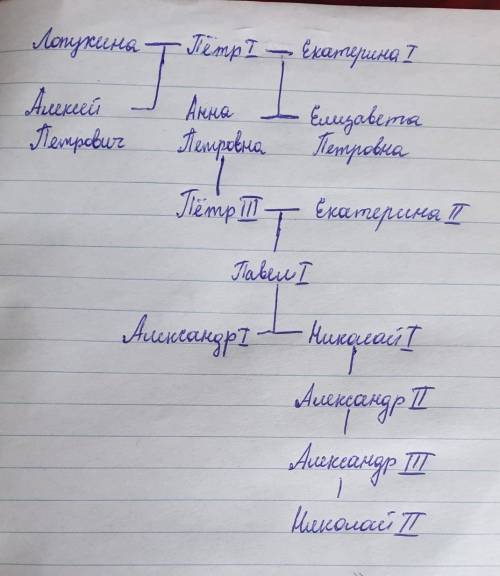 Лопухина Пётр I Екатерина I
Алексей Анна Елизавета
Петрович Петровна Петровна
Пётр III Екатерина II
Павел I
Александр I Николай I
Александр II
Александр III
Николай II